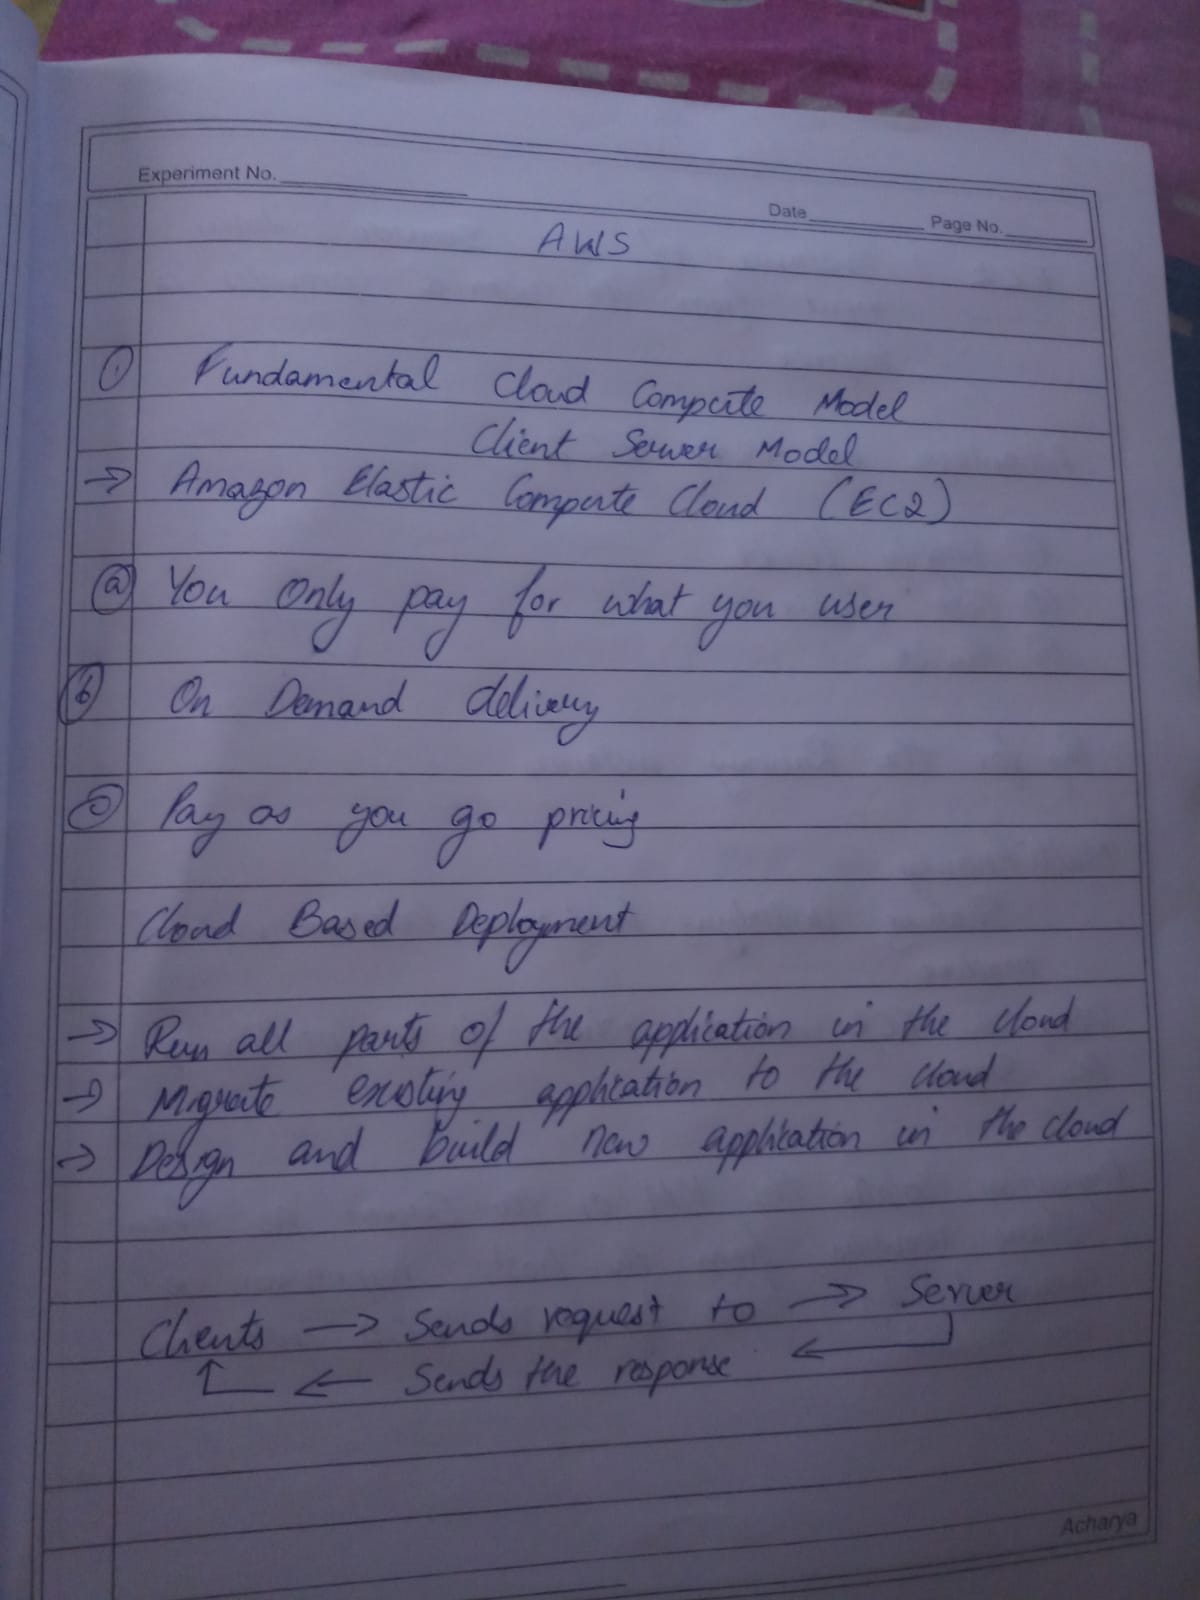 Experiment No.
Date Page No.
AWS
① Fundamental Cloud Compute Model
Client Server Model
→ Amazon Elastic Compute Cloud (EC2)
ⓐ You only pay for what you user
ⓑ On Demand delivery
ⓒ Pay as you go pricing
Cloud Based Deployment
→ Run all parts of the application in the cloud
→ Migrate existing application to the cloud
→ Design and build new application in the cloud
Clients → Sends request to → Server
← Sends the response ←
Acharya